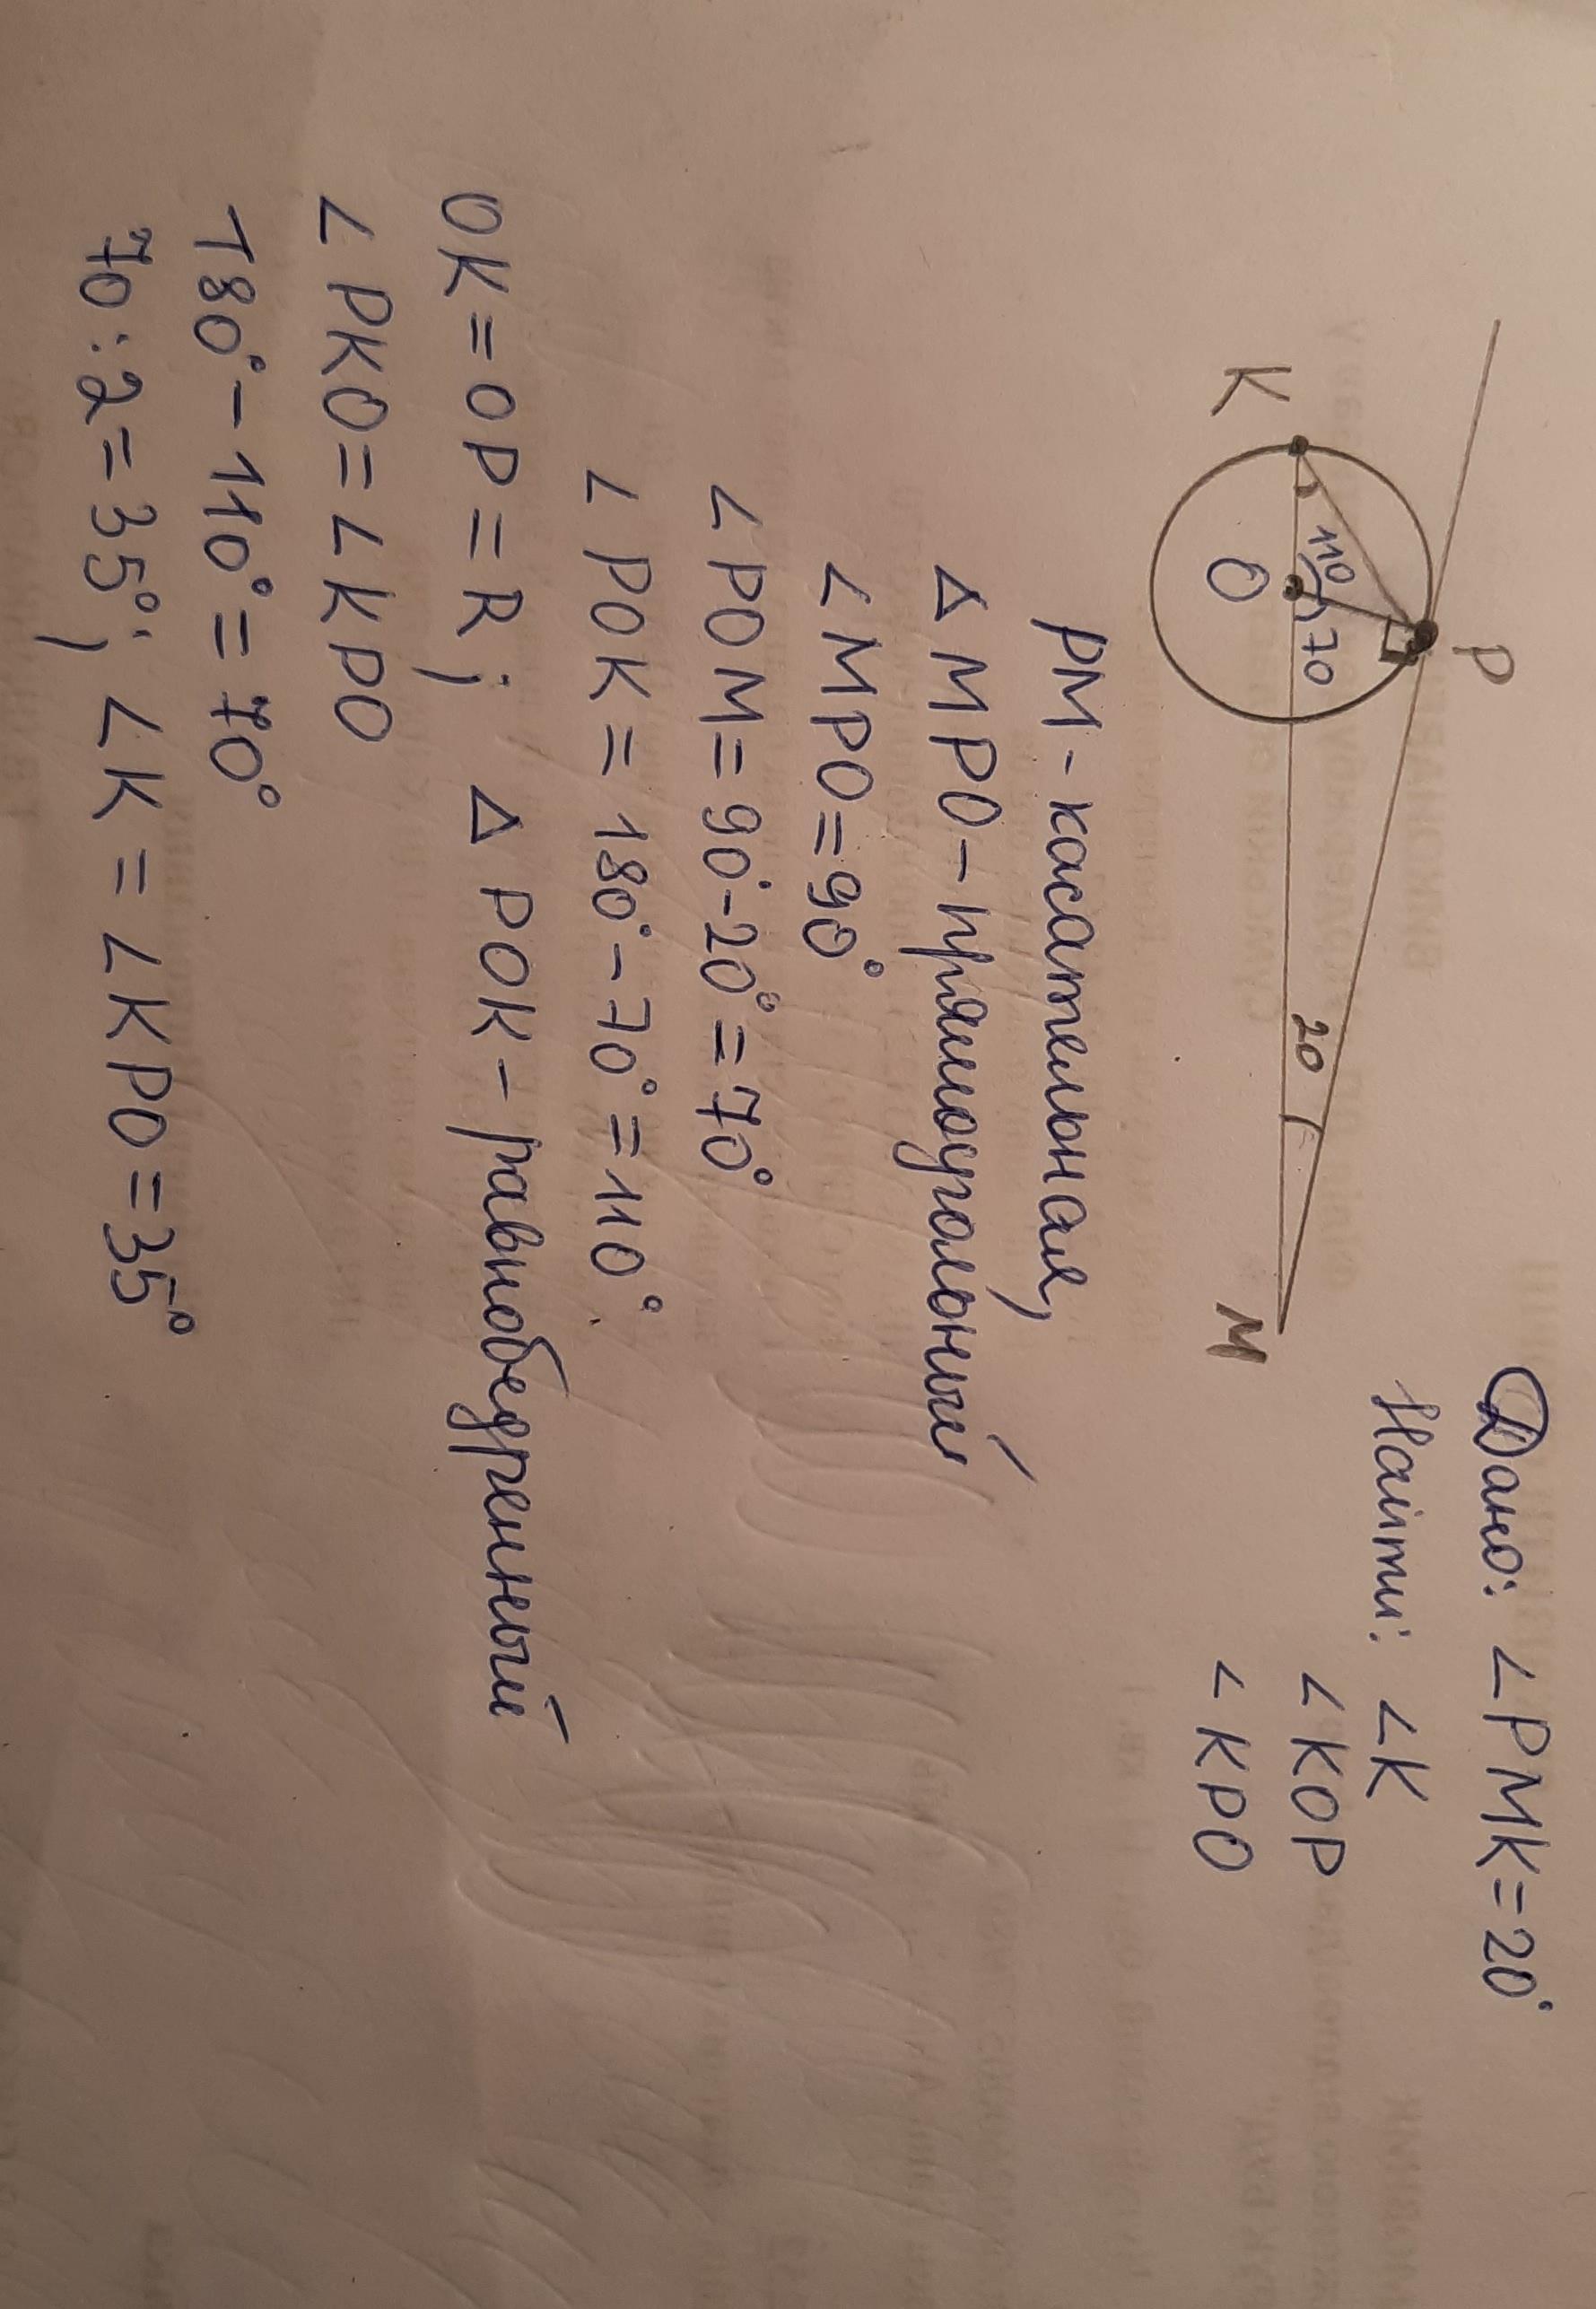 Дано: ∠PMK=20°
Найти: ∠K
∠KOP
∠KPO
P
K
110
70
O
20
M
PM-касательная,
△MPO-прямоугольный
∠MPO=90°
∠POM=90°-20°=70°
∠POK=180°-70°=110°
OK=OP=R; △POK-равнобедренный
∠PKO=∠KPO
180°-110°=70°
70:2=35°; ∠K=∠KPO=35°